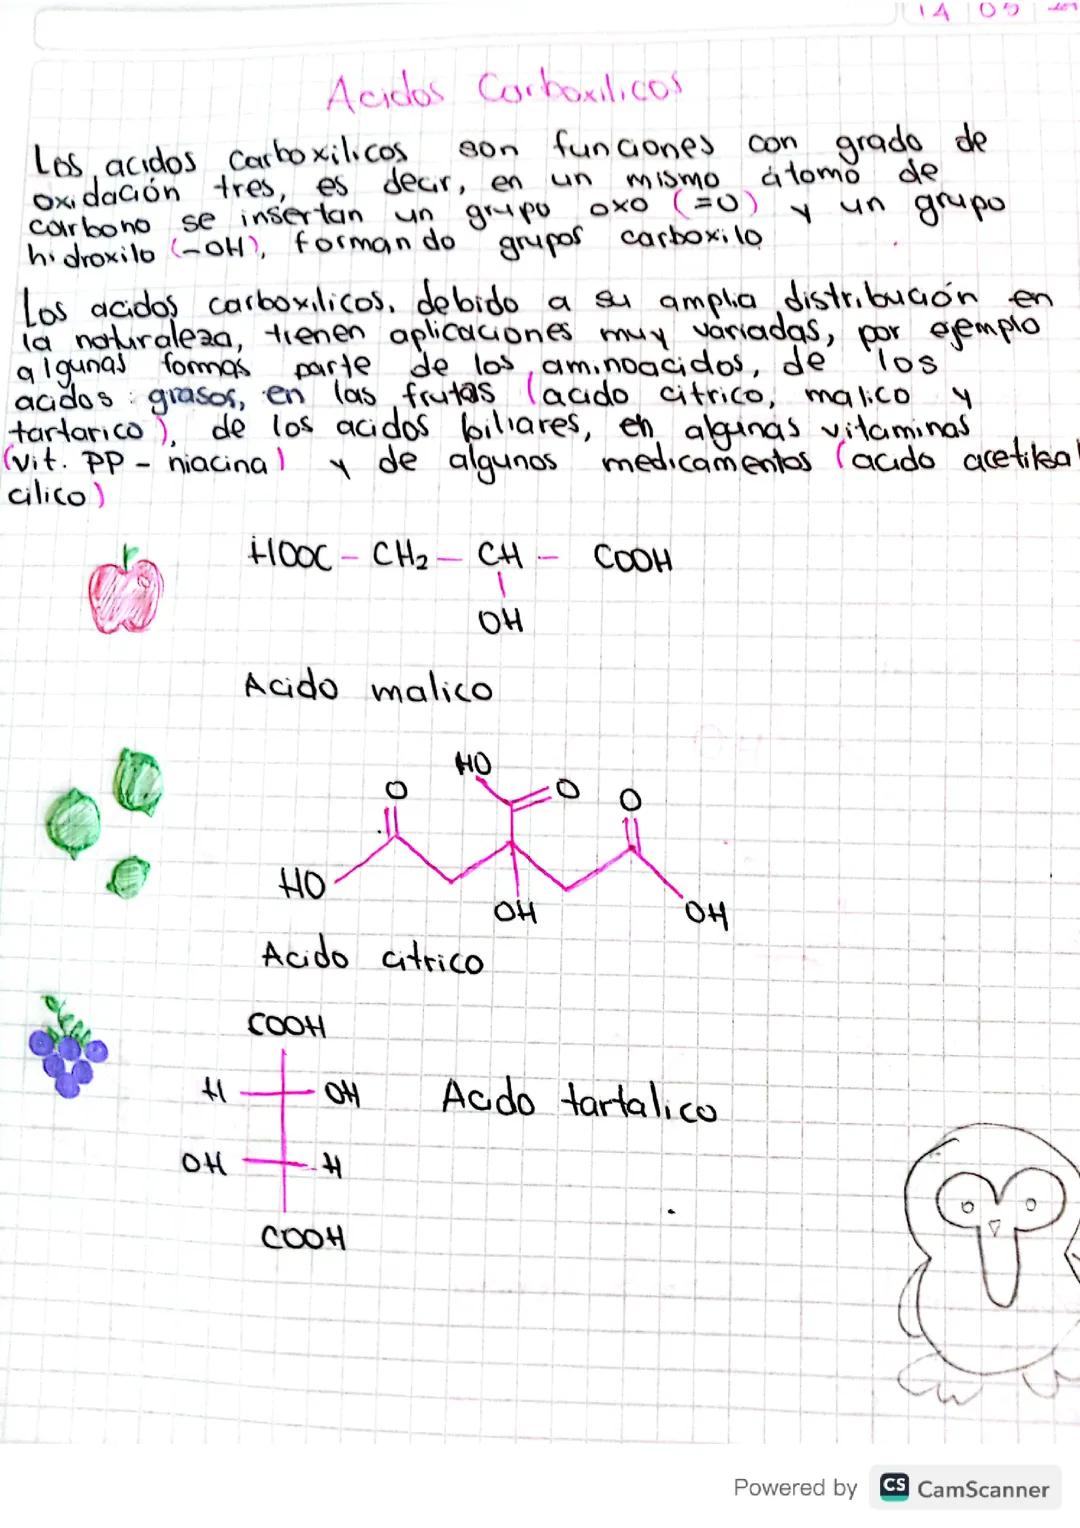 14 05
Acidos Carboxilicos
Los acidos carboxilicos son funciones con grado de
oxidación tres, es decir, en un mismo átomo de
carbono se insertan un grupo oxo (=O) y un grupo
hidroxilo (-OH), formando grupos carboxilo
Los acidos carboxilicos, debido a su amplia distribución en
la naturaleza, tienen aplicaciones muy variadas, por ejemplo
algunas formas parte de los aminoacidos, de los
acidos grasos, en las frutas (acido citrico, malico y
tartarico), de los acidos biliares, en algunas vitaminas
(vit. PP - niacina) y de algunos medicamentos (acido acetilsal
cilico)
HOOC - CH₂ - CH - COOH
OH
Acido malico
HO
O O O
HO
OH OH
Acido citrico
COOH
H OH Acido tartalico
OH H
COOH
Powered by CS CamScanner